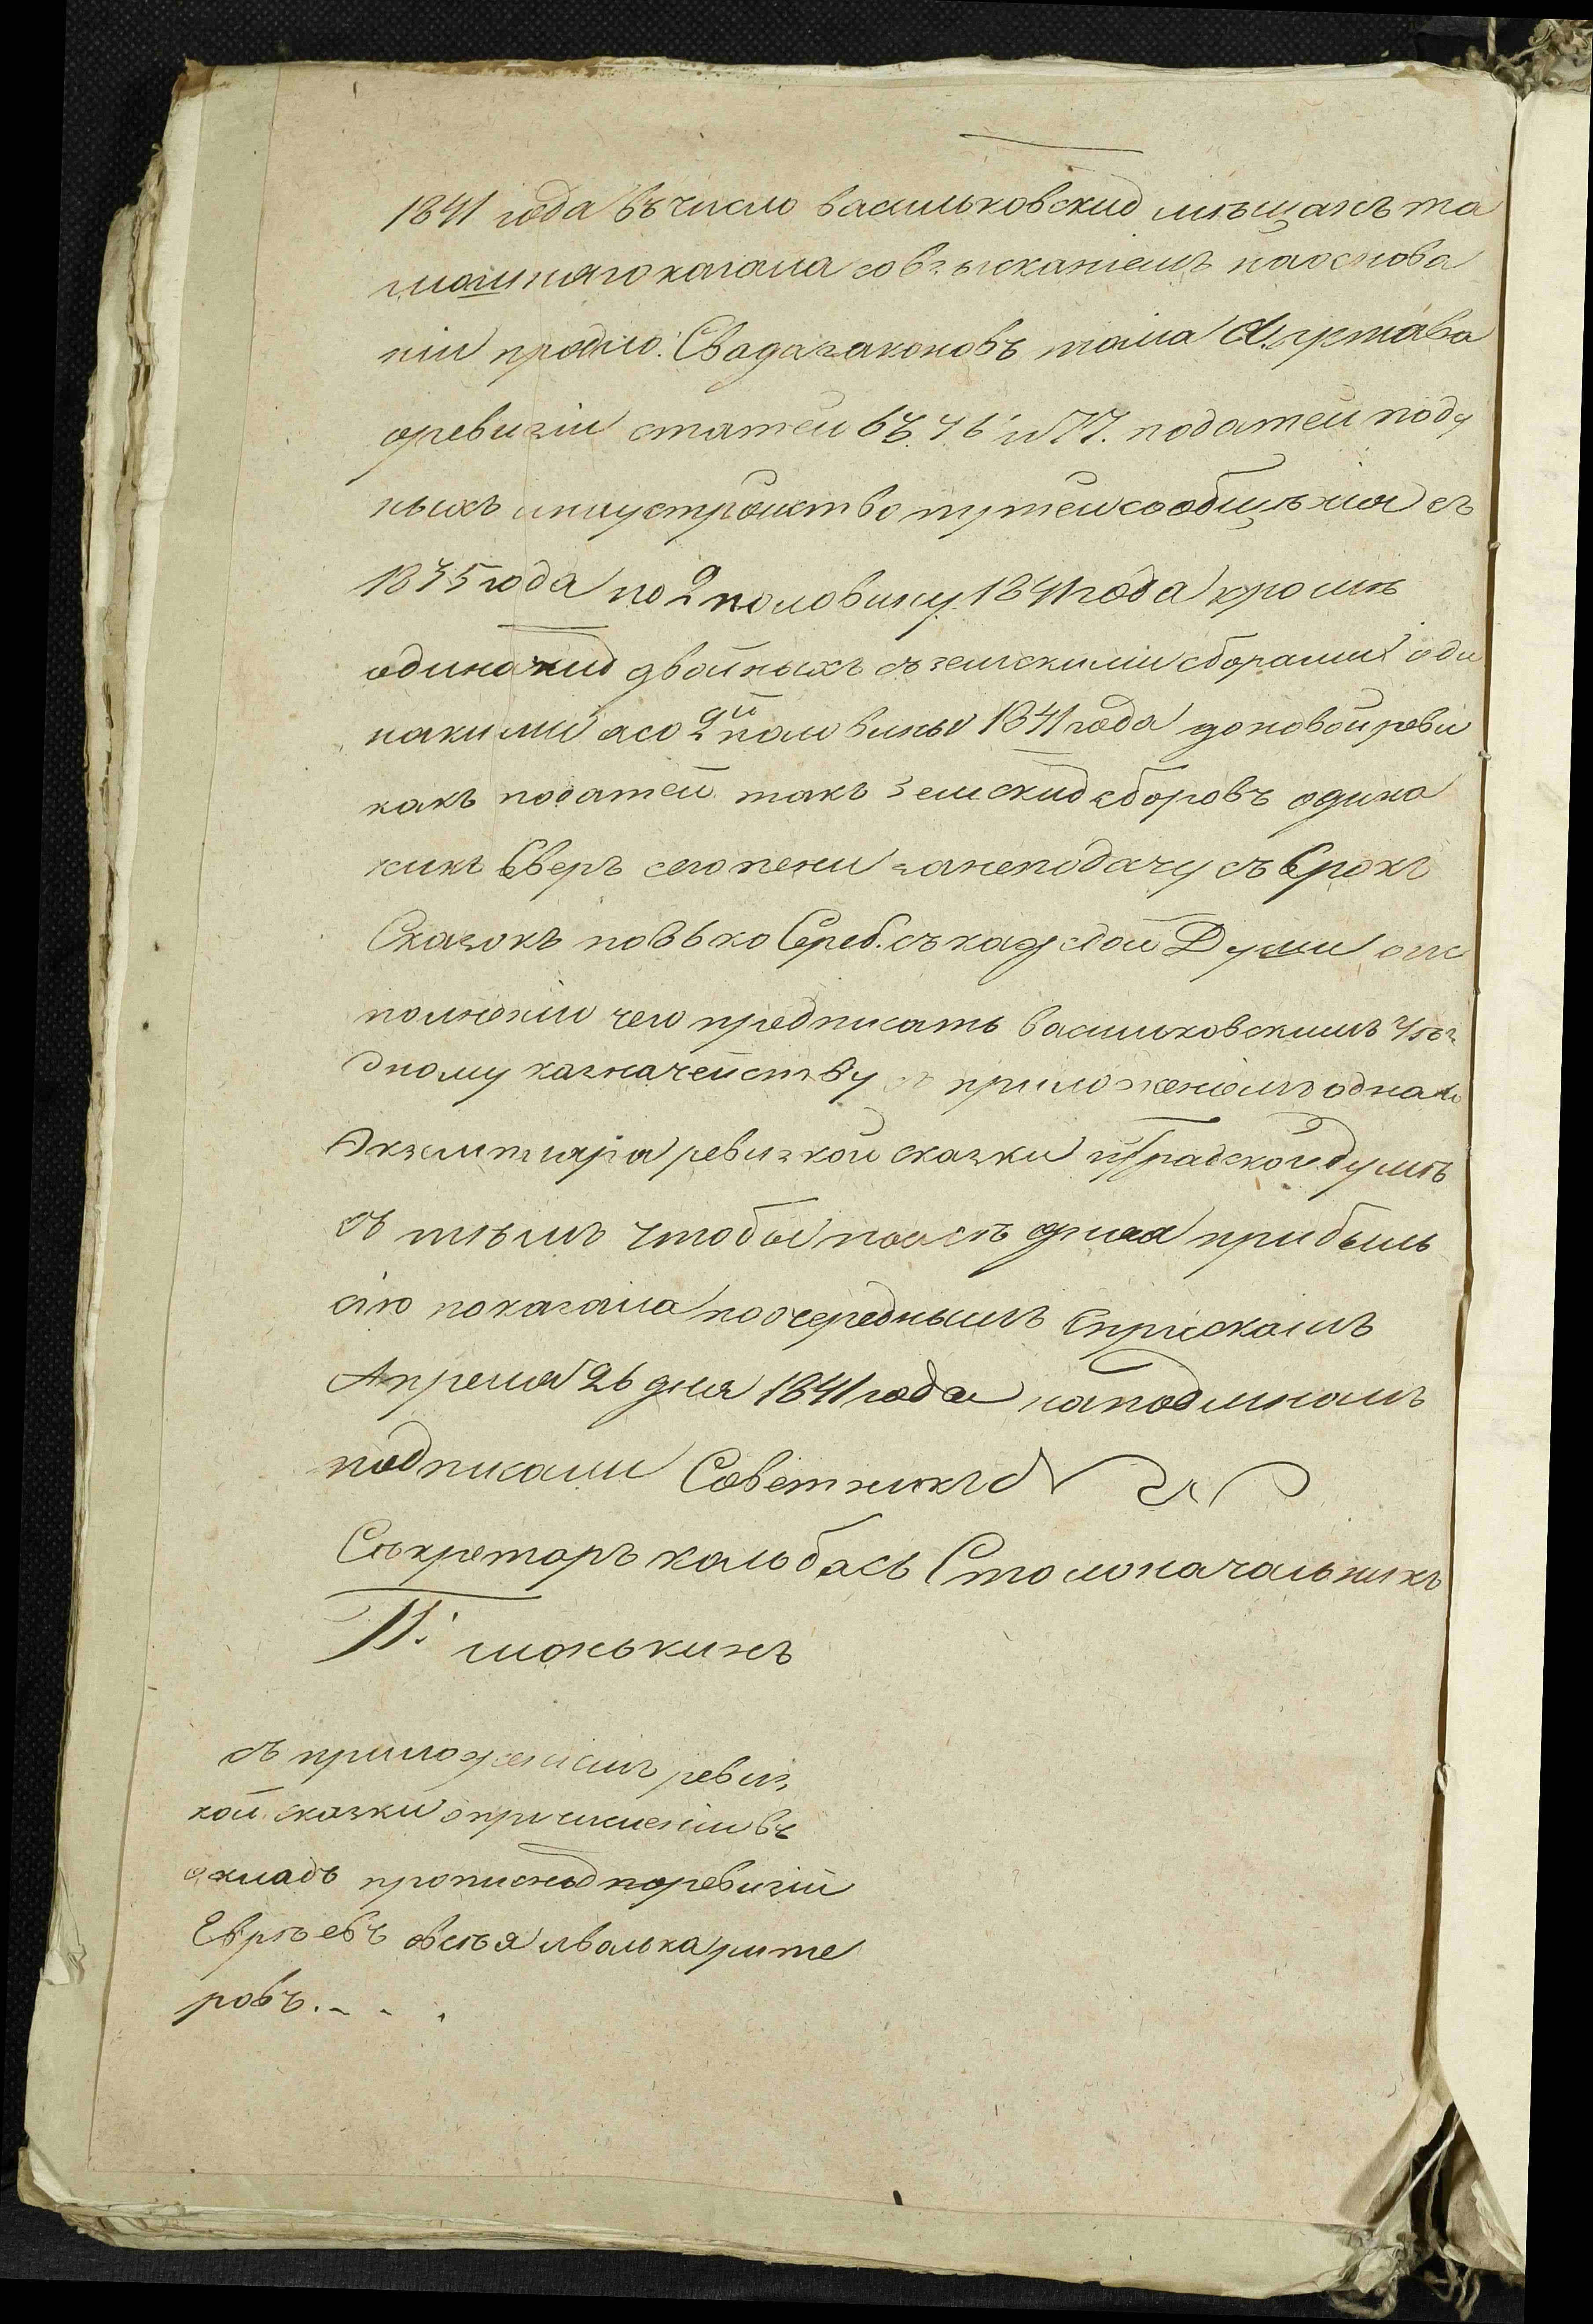 1841 года въ число васильковскихъ мѣщанъ та
мошняго кагала совзысканіемъ наоснова
ніи продло. Свода законовъ тома
оревизіи статей 67. 76 и 77. податей поду
ныхъ инаустройство путей сообщѣнія съ
1835 года по 2 половину 1841 года кромѣ
одинакихъ двойныхъ съземскими сборами оди
накими асо 2й половины 1841 года доновой реви
какъ податей такъ земскихъ сборовъ одина
кихъ Сверъ сего пени занеподачу съ Срокъ
Сказокъ по ко Сереб. съ каждой Души оис
полненіи чего предписать васильковскимъ Уѣз
дному казначейству съ приложеніемъ однаго
Экземпляра ревизкой сказки и Градской думѣ
съ тѣмъ чтобы прибыль
сію показала поочереднымъ Сприскамъ
Апреля 26 дня 1841 года наподлиномъ
подписали Советникъ
Сѣкретаръ кальбасъ Столоначальникъ
П. монькинъ
съ приложеніемъ ревиз
кой сказки опричисленіи въ
окладъ прописныхъ поревизіи
Еврѣевъ овсѣя иволька рите
ровъ. - - .